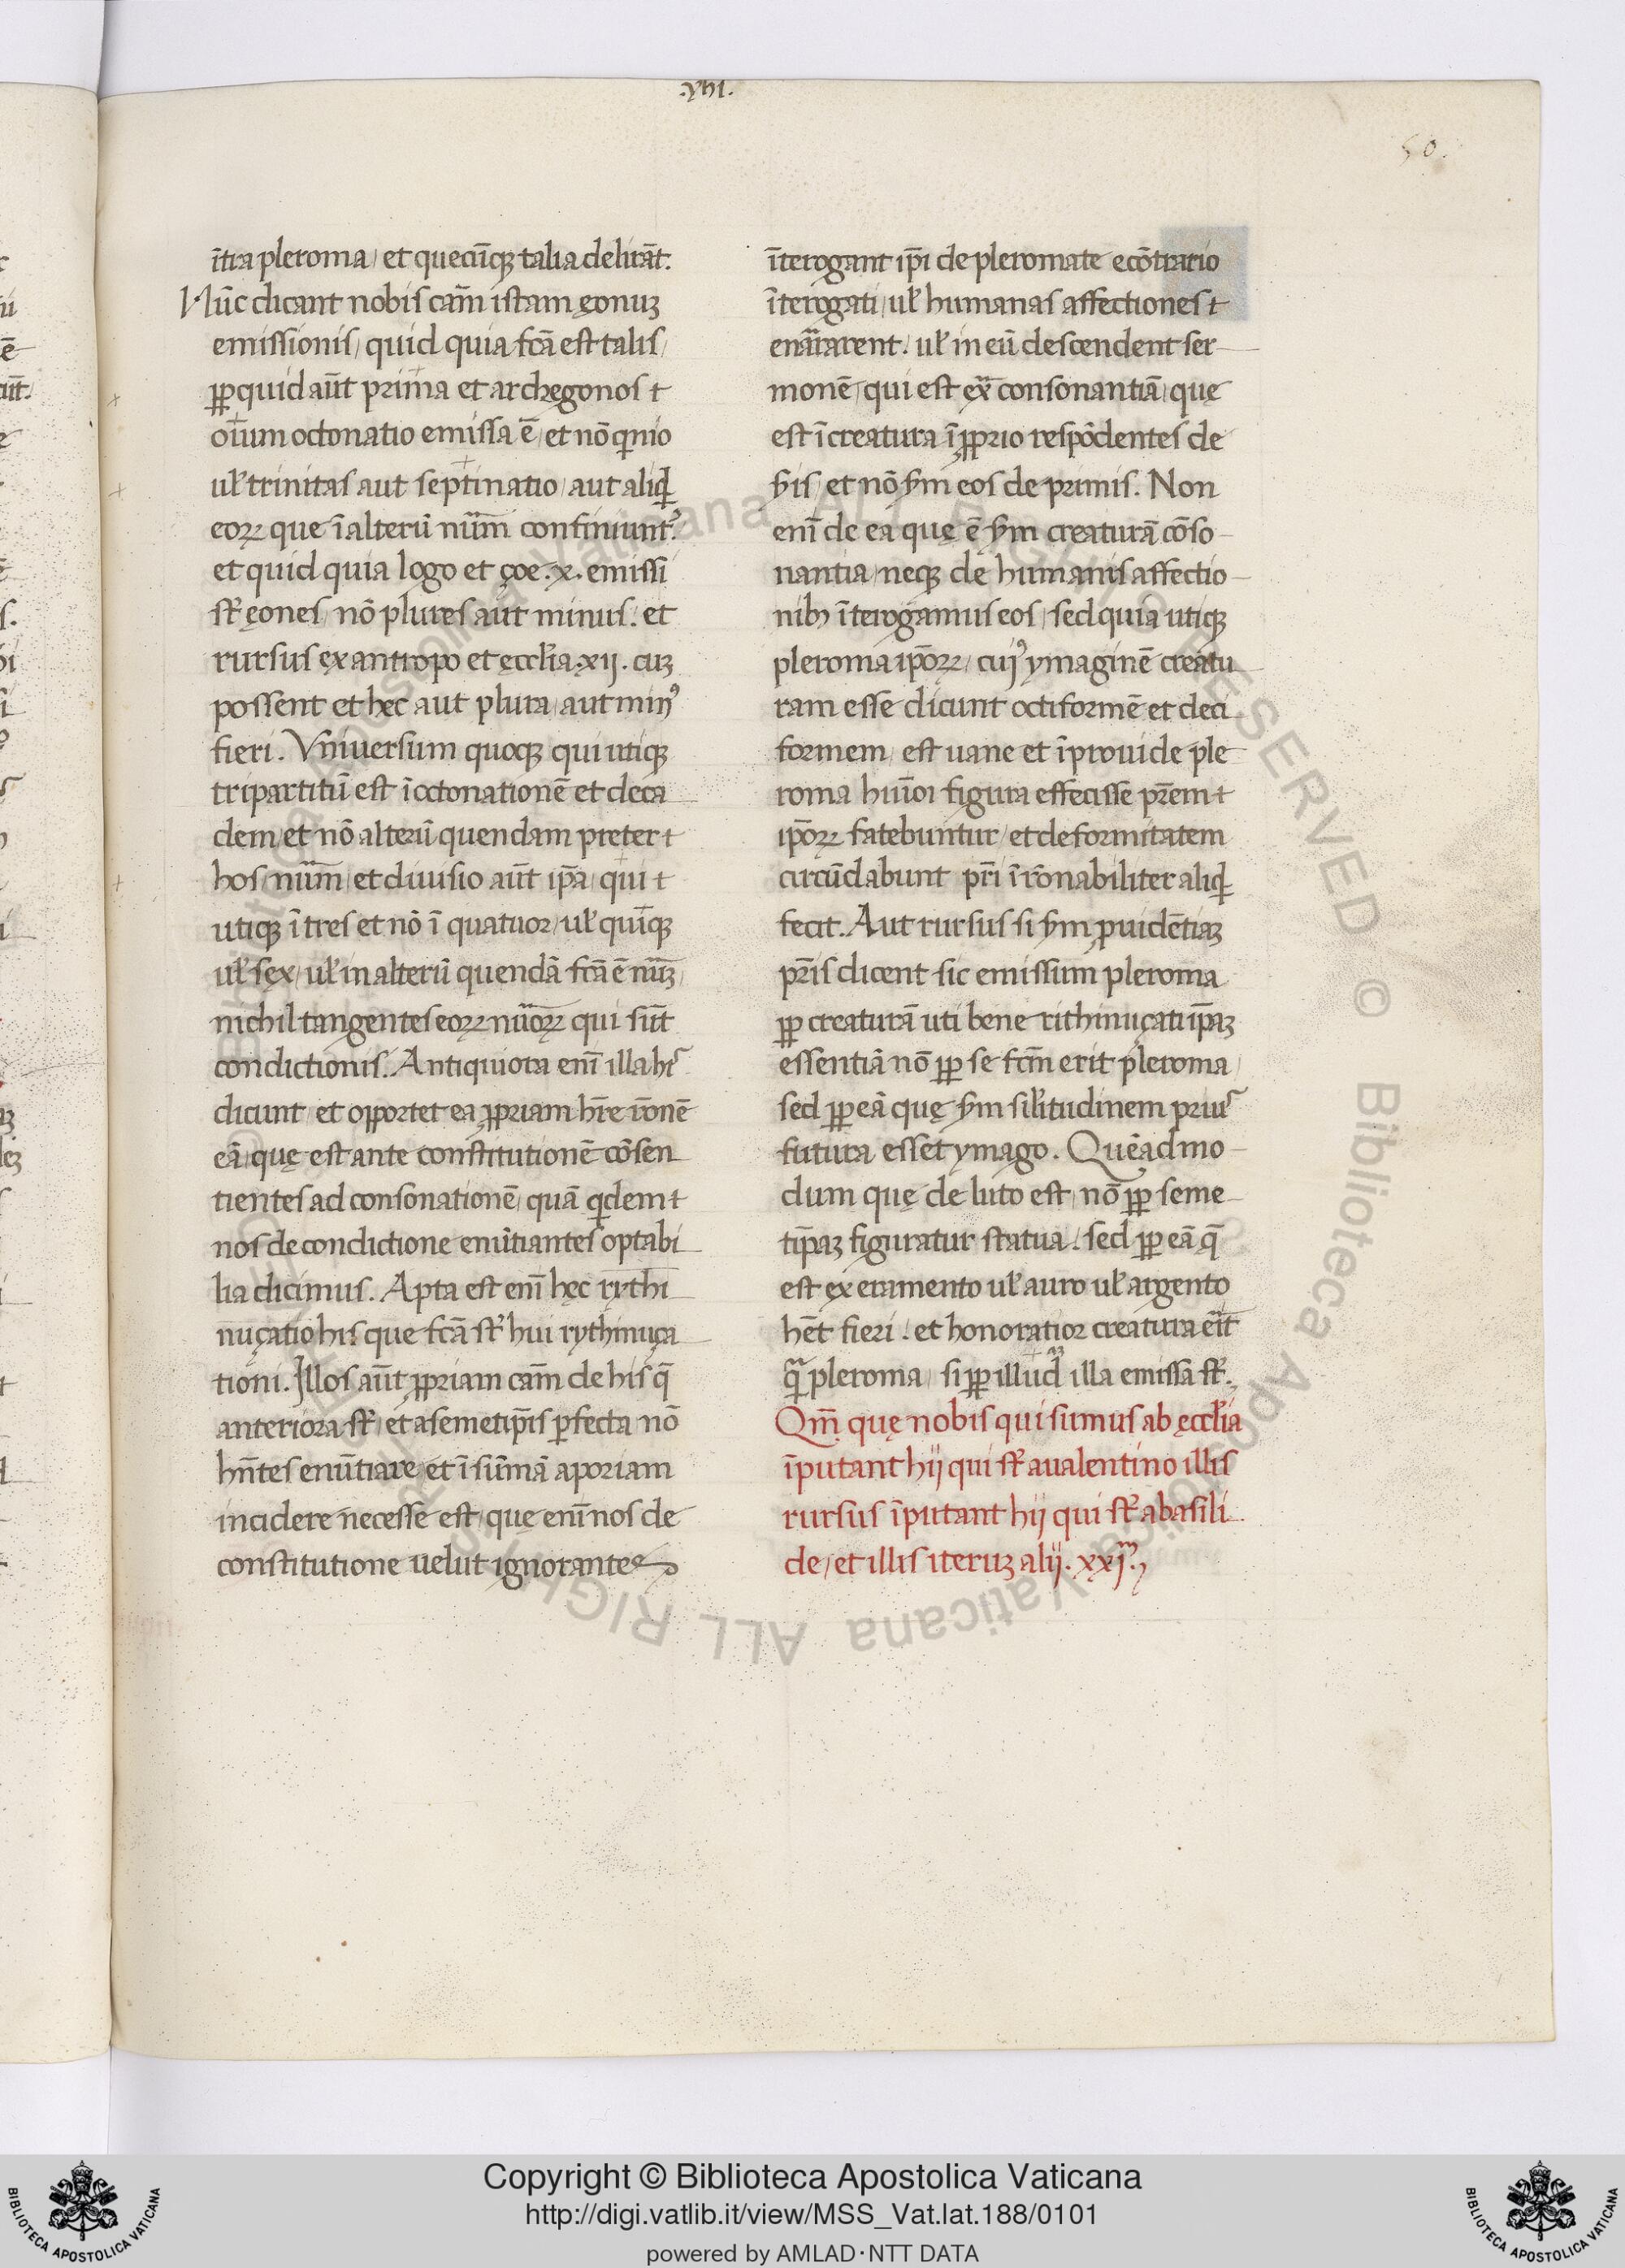 .xhi.
50.
ītra pleroma / et quecūqꝫ talia delirāt.
Nūc dicant nobis cām istam ęonuꝫ
emissionis / quid quia fcā est talis /
ꝓpquid aūt prima et archegonos t
oīum octonatio emissa ē / et nō qinio
ul̓ trinitas aut septinatio / aut aliqđ
eoꝝ que ī alterū nūm confiniunt̾.
et quid quia logo et çoe .x. emissi
st̄ ęones / nō plures aūt minus. et
rursus ęx antropo et ęccłia .xij. cuꝫ
possent et hęc aut plura / aut minꝰ
fieri. Vniversum quoqꝫ qui utiqꝫ
tripartitū est ī octonationē et deca
dem / et nō alterū quendam preter t
hos nūm / et divisio aūt ip̄a / qui t
utiqꝫ ī tres et nō ī quatuor / ul̓ quīqꝫ
ul̓ sęx / ul̓ in alterū quendā fcā ē nūꝫ /
nichil tangentes eoꝝ nūoꝝ qui sūt
condictionis. Antiquiora enī illa hi̾
dicunt / et opportet ea ꝓpriam hr̄e rōnē
eā / quę est ante constitutionē cōsen
tientes ad consonationē / quā qidem t
nos de condictione enūtiantes optabi
lia dicimus. Apta est enī hęc rythi
nuçatio his que fcā st̄ hui rythinuça
tioni. Illos aūt ꝓpriam cām de his q̄
anteriora st̄ / et a semetip̄is ꝑfecta nō
hn̄tes enūtiare et ī sūmā aporiam
incidere necesse est / quę enī nos de
constitutione velut ignorantes
īterogant ip̄i de pleromate econ̄trario
īterogati / ul̓ humanas affectiones t
enārrarent. ul̓ in eū descendent ser
monē / qui est ęx̄ consonantiā / quę
est ī creatura ī ꝓprio respōdentes de
ẏis / et nō ẏm eos de primis. Non
enī de ea quę ē ẏm creaturā cōso
nantia / neqꝫ de humanis affectio
nibꝫ īterogamus eos / sed quia utiqꝫ
pleroma ip̄oꝝ / cuijꝰ ymaginē creatu
ram esse dicunt octiformē et deci
formem / est uane et īprouide ple
roma huīoi figura effecisse pr̄em t
ip̄oꝝ fatebuntur / et deformitatem
circūdabunt pr̄i īrōnabiliter aliqđ
fecit. Aut rursus si ẏm ꝓuidētiaꝫ
pr̄is dicent sic emissum pleroma
ꝓp creaturā uti bene rithinuçati ip̄aꝫ
essentiā nō ꝓp se fcm̄ erit pleroma /
sed ꝓp eā quę ẏm sil̓itudinem priu̾
futura esset ymago. Quēadmo
dum quę de luto est / nō ꝓp seme
tip̄aꝫ figuratur statua. sed ꝓp eā q̄
est ex eramento ul̓ auro ul̓ argento
hēt fieri. et honoratior creatura eīt
qᵃ pleroma / si ꝓp illud illa emissa st̄.
Qm̄ quę nobis qui sumus ab ęccłia
īputant hij qui st̄ aualentino illis
rursus īputant hij qui st̄ abasili
de / et illis iteruꝫ alij. xxjᵐ.
Copyright © Biblioteca Apostolica Vaticana
http://digi.vatlib.it/view/MSS_Vat.lat.188/0101
powered by AMLAD·NTT DATA
BIBLIOTECA APOSTOLICA VATICANA
BIBLIOTECA APOSTOLICA VATICANA